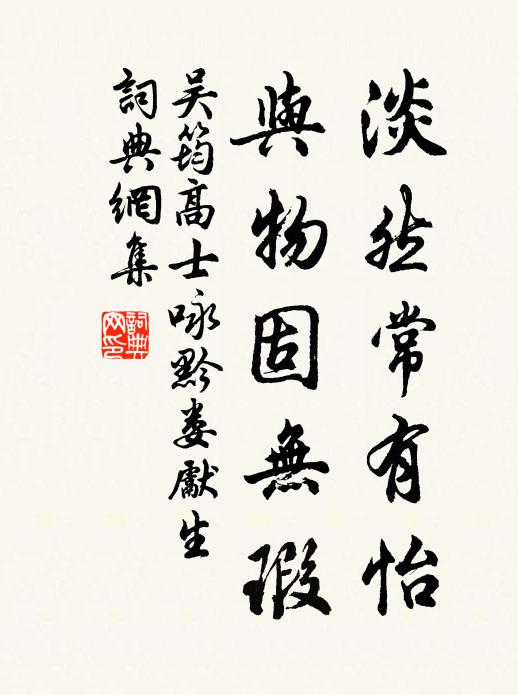 淡然常有怡
與物固無瑕
吳筠高士咏黔婁獻生
詞典網集
詞典
网印